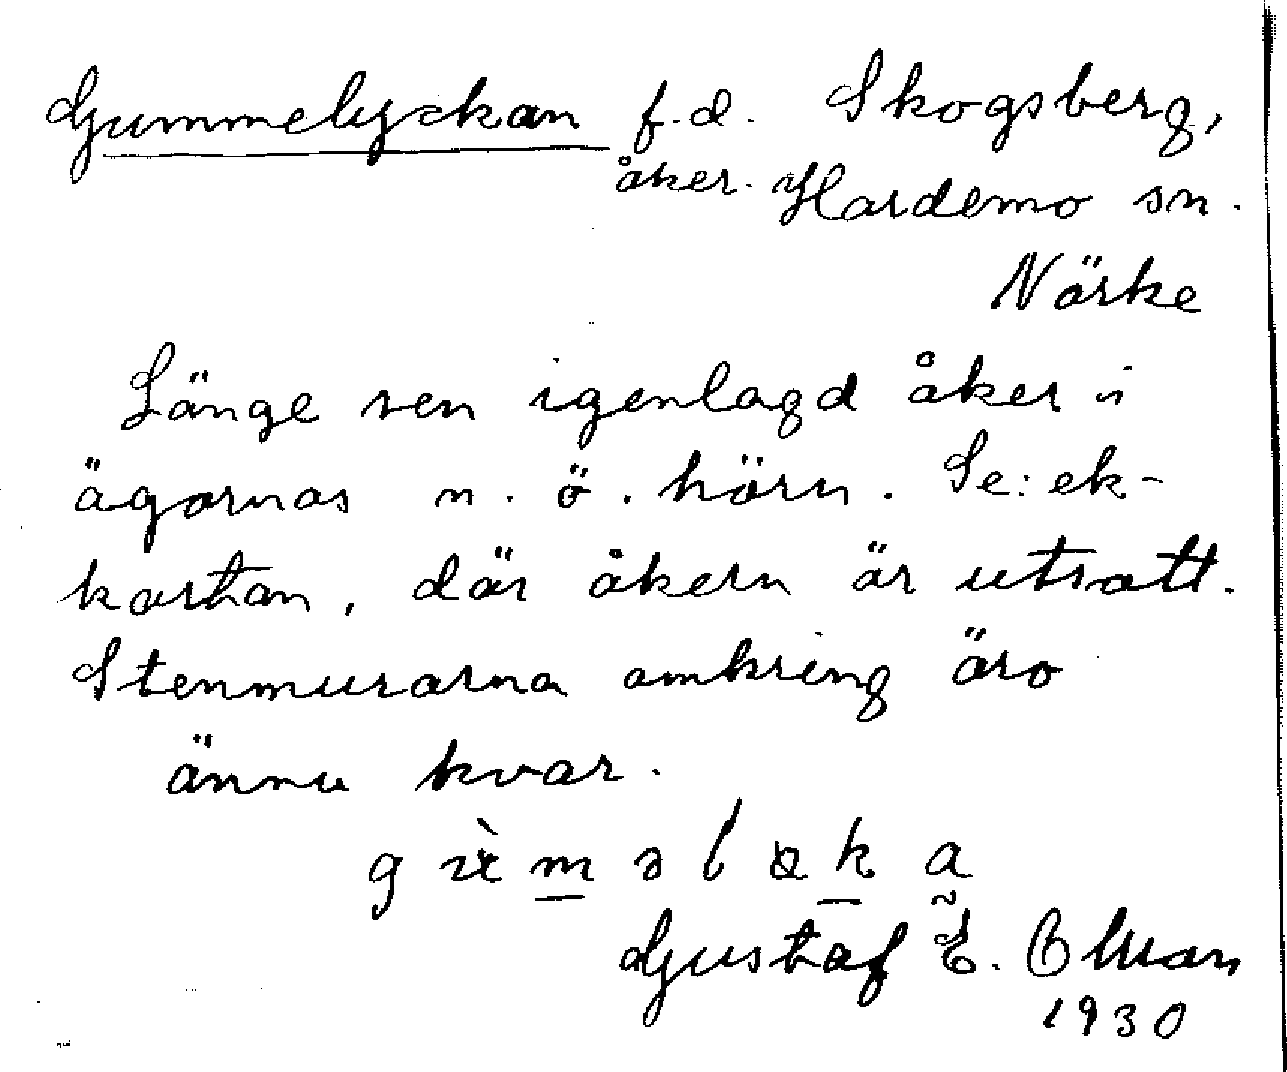 Gummelyckan f.d. Skogsberg,
åker. Hardemo sn.
Närke
Länge sen igenlagd åker i
ägornas n.ö. hörn. Se: ek-
kartan, där åkern är utsatt.
Stenmurarna omkring äro
ännu kvar.
Gustaf E.
1930